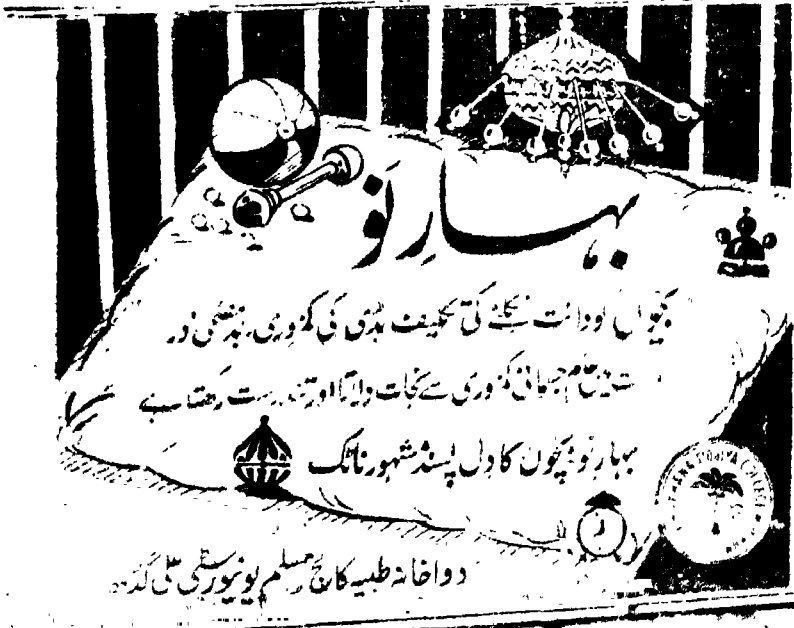 بہارِ نَو
بچوں کو دانت نکلنے کی تکلیف ہڈی کی کمزوری، بدہضمی اور
عام جسمانی کمزوری سے نجات دلاتا اور تندرست رکھتا ہے
بہارِ نو بچوں کا دل پسند مشہور ٹانک
دواخانہ طبیہ کالج مسلم یونیورسٹی علی گڑھ
TIBBIYA COLLEGE